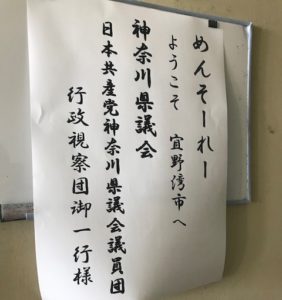 めんそーれー
ようこそ 宜野湾市へ
神奈川県議会
日本共産党神奈川県議会議員団
行政視察団御一行様